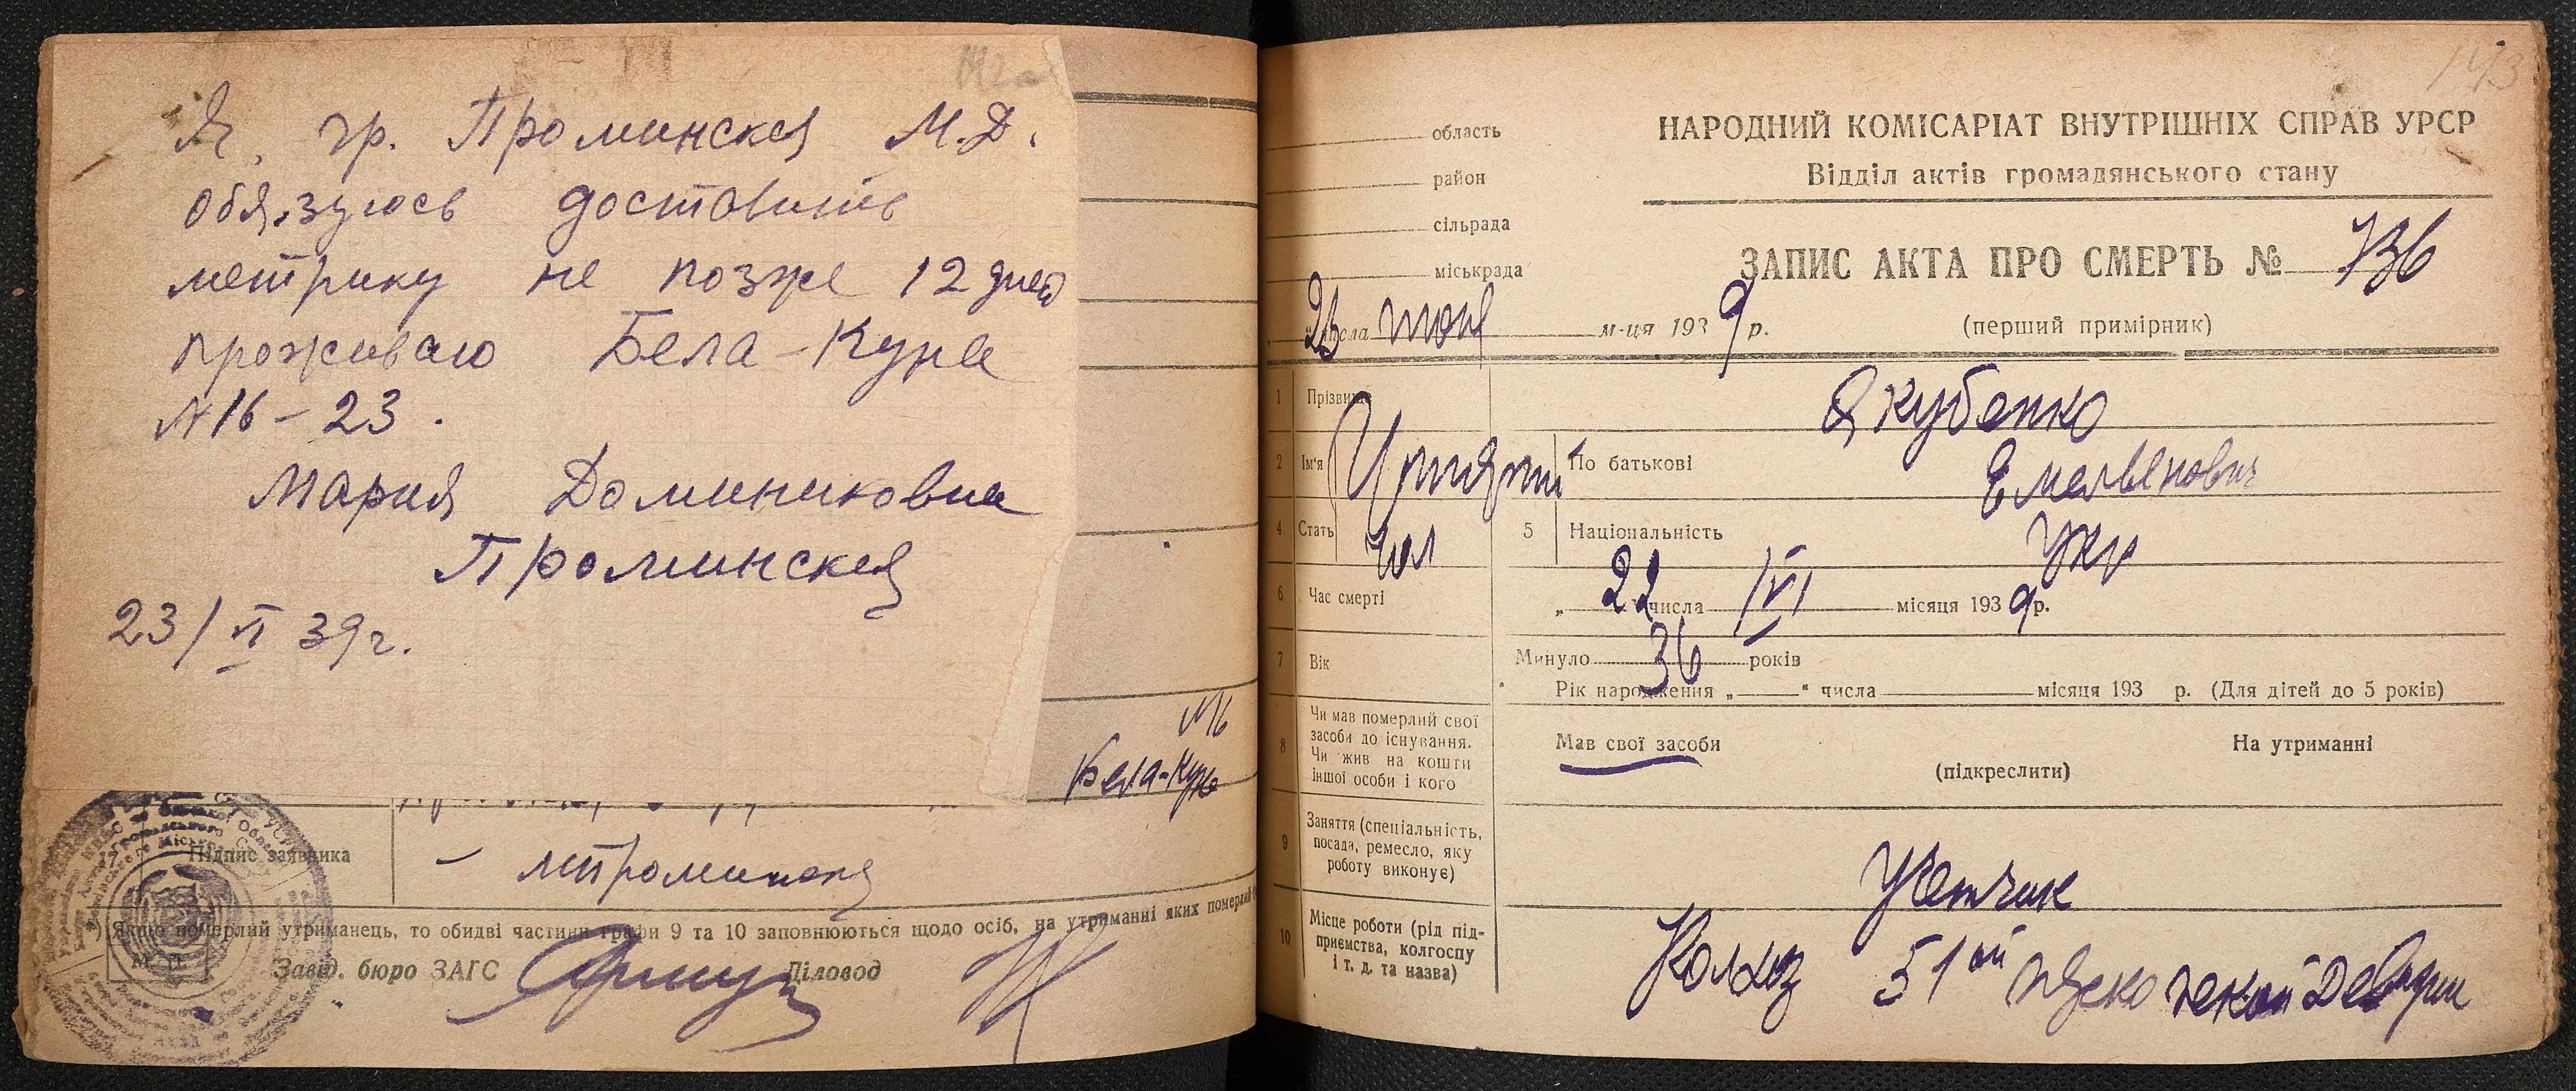 142а
Я, гр. Проминская М.Д.
обязуюсь доставить
метрику не позже 12 дней
проживаю Бела-Куна
№16-23.
Мария Доминиковна
Проминская
23/VI 39г.
№16
Бела-Куна
17 Підпис заявника
— МПроминская
*) Якщо померлий утриманець, то обидві частини графи 9 та 10 заповнюються щодо осіб, на утриманні яких померлий
М. П.
Завід. бюро ЗАГС Діловод
143
область
район
сільрада
міськрада
НАРОДНИЙ КОМІСАРІАТ ВНУТРІШНІХ СПРАВ УРСР
Відділ актів громадянського стану
ЗАПИС АКТА ПРО СМЕРТЬ № 736
(перший примірник)
„23 числа июня м-ця 1939 р.
1 Прізвище Якубенко
2 Ім'я По батькові Емельянович
4 Стать Чол 5 Національність Укр
6 Час смерті „22 числа VI місяця 1939 р.
7 Вік Минуло 36 років
Рік народження „ “ числа місяця 193 р. (Для дітей до 5 років)
8 Чи мав померлий свої
засоби до існування.
Чи жив на кошти
іншої особи і кого
Мав свої засоби На утриманні
(підкреслити)
9 Заняття (спеціальність,
посада, ремесло, яку
роботу виконує)
Учетчик
10 Місце роботи (рід під-
приємства, колгоспу
і т. д. та назва)
Колхоз 51ой Дивизии